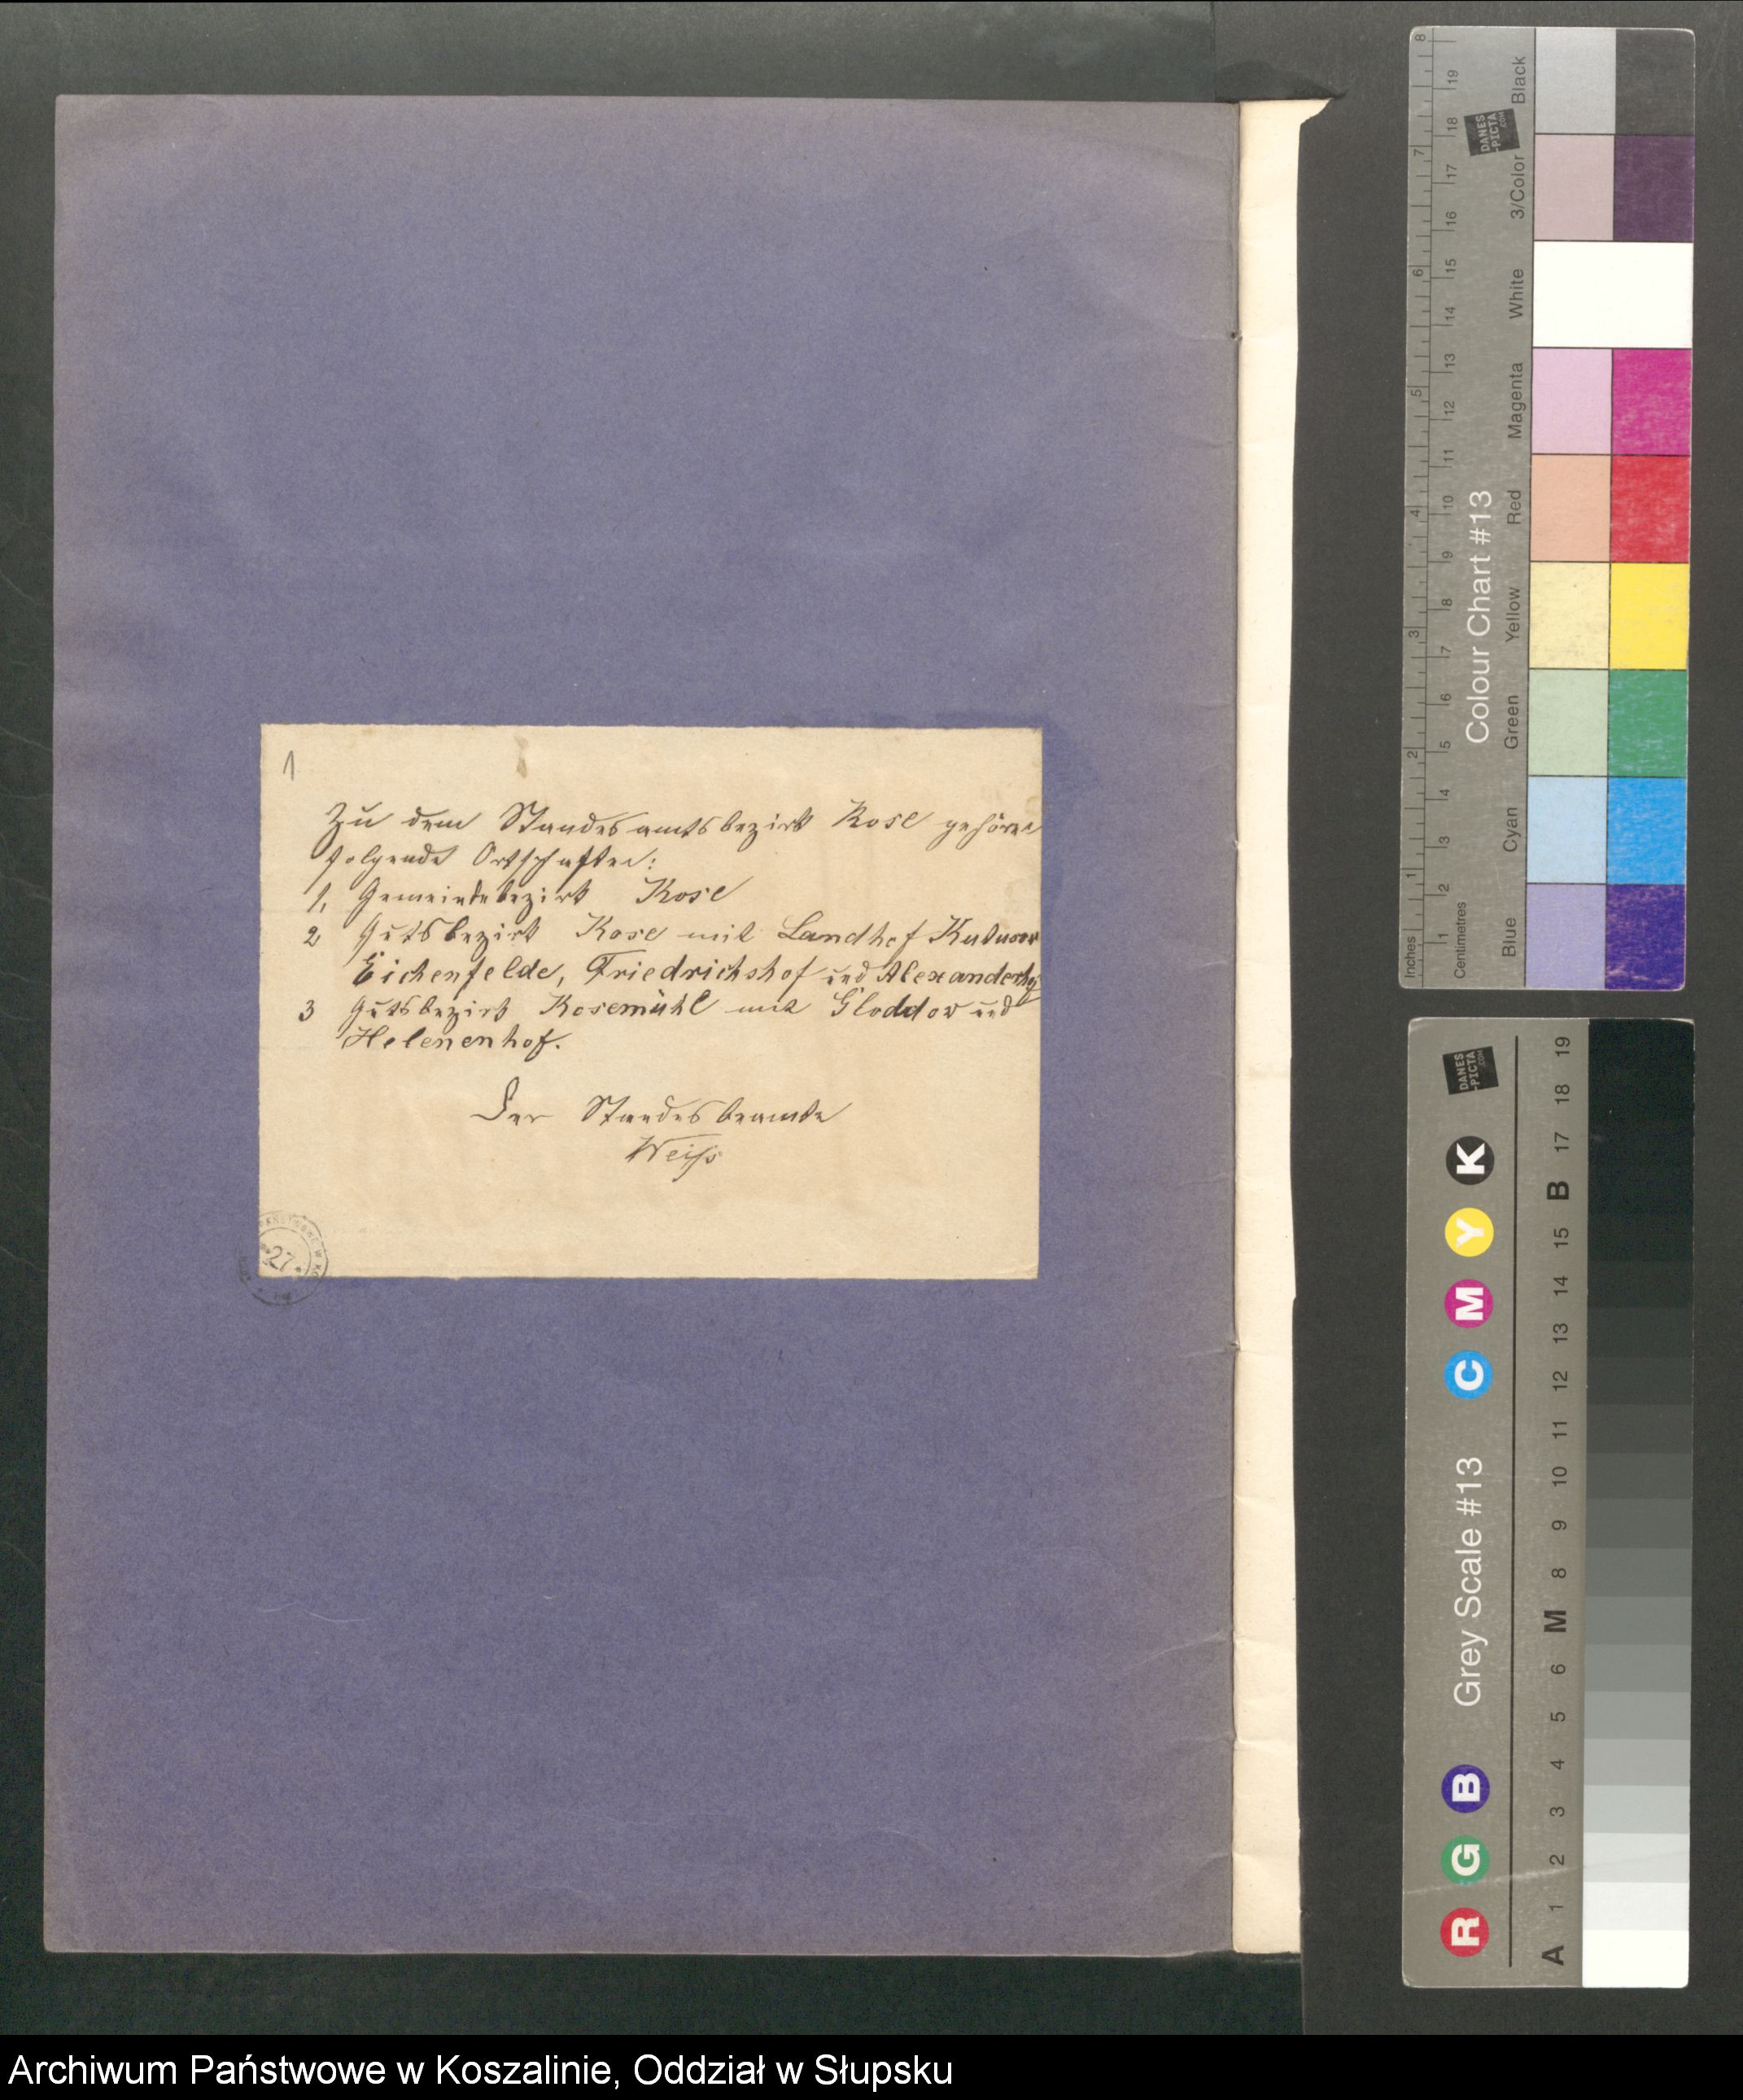 1
Zu dem Standesamtsbezirk Kose gehören
folgende Ortschaften:
1, Gemeindebezirk Kose
2 Gutsbezirk Kose mit Landhof Kutusow
Eichenfelde, Friedrichshof und Alexanderhof
3 Gutsbezirk Kosemühl mit Gloddow und
Helenenhof.
Der Standesbeamte
Weiß
27
Inches 1 2 3 4 5 6 7 8
Centimetres 1 2 3 4 5 6 7 8 9 10 11 12 13 14 15 16 17 18 19
Colour Chart #13
Blue Cyan Green Yellow Red Magenta White 3/Color Black
DANES
-PICTA
.COM
R G B Grey Scale #13 C M Y K
A 1 2 3 4 5 6 M 8 9 10 11 12 13 14 15 B 17 18 19
DANES
-PICTA
.COM
Archiwum Państwowe w Koszalinie, Oddział w Słupsku